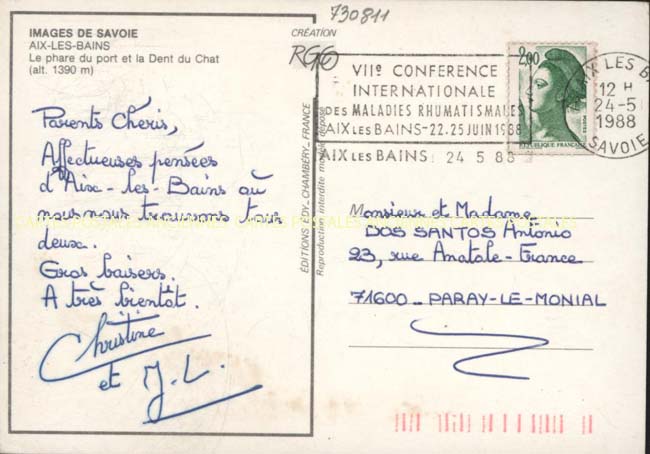 730811
IMAGES DE SAVOIE
AIX-LES-BAINS
Le phare du port et la Dent du Chat
(alt. 1390 m)
Parents Chéris,
Affectueuses pensées
d'Aix-les-Bains où
nous nous trouvons tous
deux.
Gros baisers.
A très bientôt.
Christine
et J.L.
CRÉATION
ÉDITIONS EDY_CHAMBÉRY_FRANCE
Reproduction interdite même
VIIe CONFERENCE
INTERNATIONALE
DES MALADIES RHUMATISMALES
AIX LES BAINS-22.25 JUIN 1988
AIX LES BAINS 24 5 88
2,00
POSTES
REPUBLIQUE FRANÇAISE
AIX LES B
12 H
24-5
1988
SAVOIE
Monsieur et Madame
DOS SANTOS Antonio
23, rue Anatole-France
71600_PARAY-LE-MONIAL